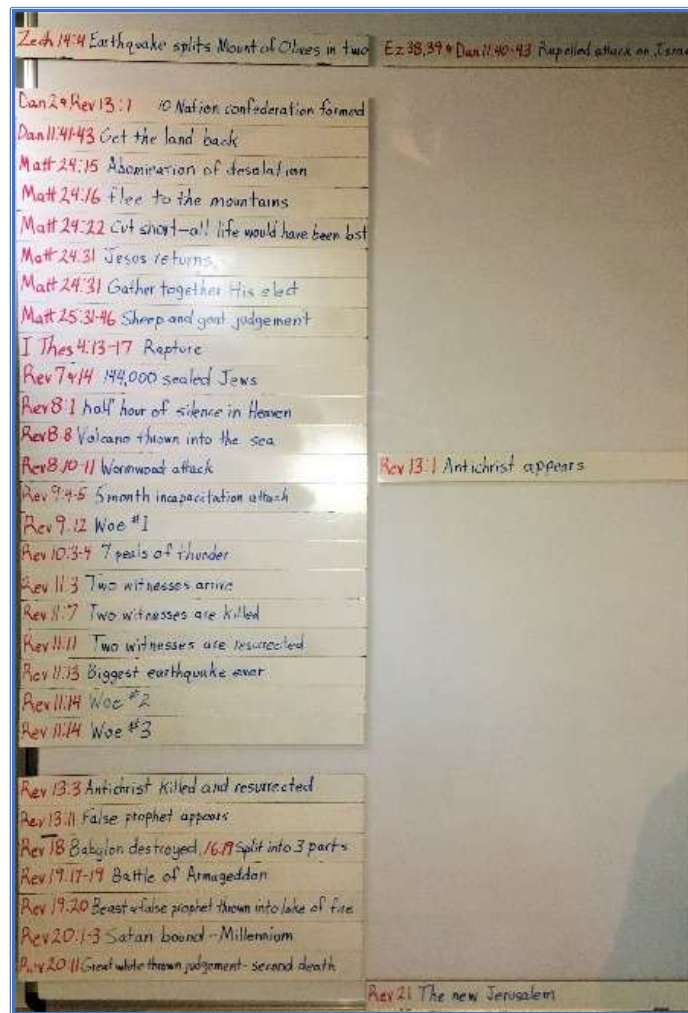 Zech 14:4 Earthquake splits Mount of Olives in two
Ez 38,39 & Dan 11:40-43 Rupelled attack on Israe
Dan 2 & Rev 13:1 10 Nation confederation formed
Dan 11:41-43 Get the land back
Matt 24:15 Abomination of desolation
Matt 24:16 flee to the mountains
Matt 24:22 Cut short-all life would have been lost
Matt 24:31 Jesus returns
Matt 24:31 Gather together His elect
Matt 25:31-46 Sheep and goat judgement
I Thes 4:13-17 Rapture
Rev 7&14 144,000 sealed Jews
Rev 8:1 half hour of silence in Heaven
Rev 8:8 Volcano thrown into the sea
Rev 8:10-11 Wormwood attack
Rev 13:1 Antichrist appears
Rev 9:4-5 5 month incapacitation attack
Rev 9:12 Woe #1
Rev 10:3-4 7 peals of thunder
Rev 11:3 Two witnesses arrive
Rev 11:7 Two witnesses are killed
Rev 11:11 Two witnesses are resurrected
Rev 11:13 Biggest earthquake ever
Rev 11:14 Woe #2
Rev 11:14 Woe #3
Rev 13:3 Antichrist killed and resurrected
Rev 13:11 False prophet appears
Rev 18 Babylon destroyed, 16:19 Split into 3 parts
Rev 19:17-19 Battle of Armageddon
Rev 19:20 Beast & false prophet thrown into lake of fire
Rev 20:1-3 Satan bound-Millennium
Rev 20:11 Great white thrown judgement-second death
Rev 21 The new Jerusalem